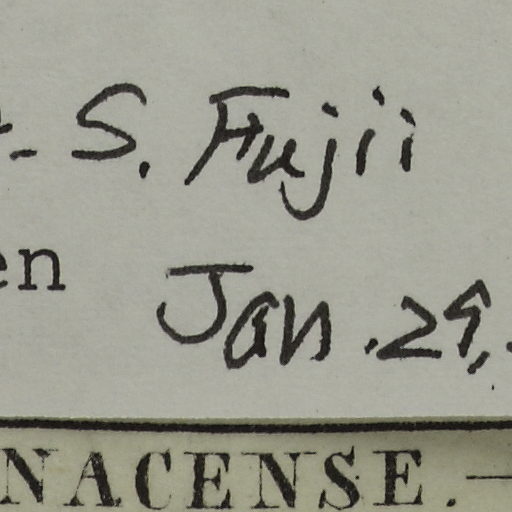 S. Fujii
en
Jan. 29,
NACENSE.—